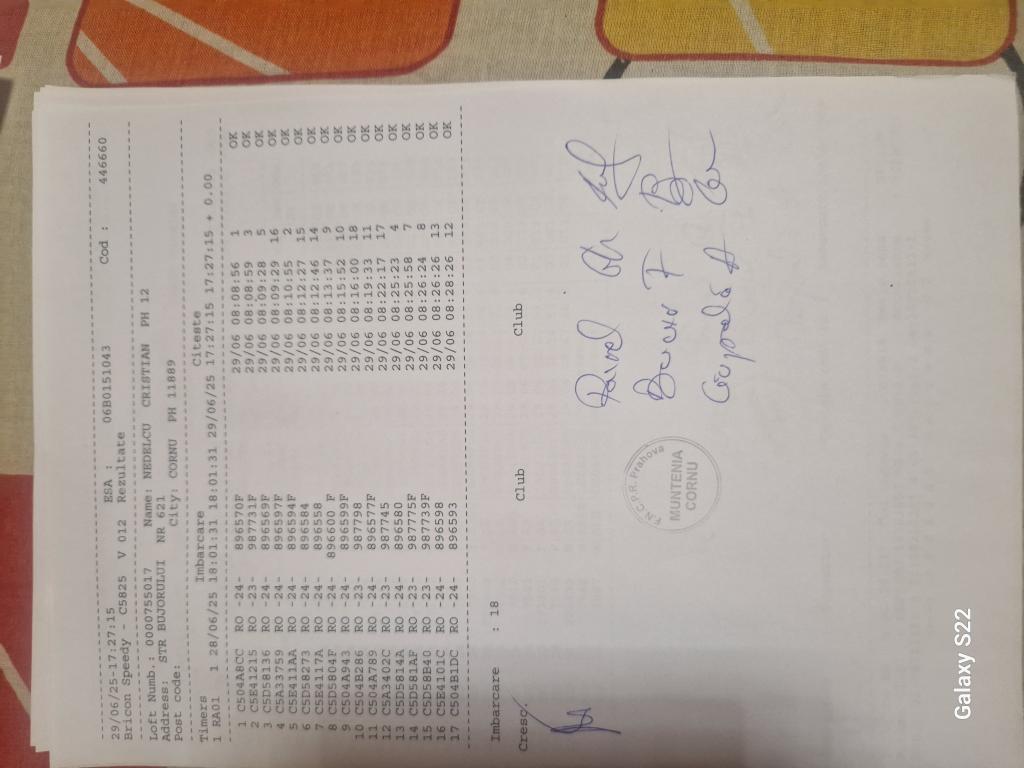 29/06/25-17:27:15 ESA : 06B0151043 Cod : 446660
Bricon Speedy - C5825 V 012 Rezultate
Loft Numb.: 0000755017 Name: NEDELCU CRISTIAN PH 12
Address: STR BUJORULUI NR 621
Post code: City: CORNU PH 11889
Timers Imbarcare Citeste
1 RA01 1 28/06/25 18:01:31 18:01:31 29/06/25 17:27:15 17:27:15 + 0.00
1 C504A8CC RO -24- 896570F 29/06 08:08:56 1 OK
2 C5E41215 RO -23- 987731F 29/06 08:08:59 3 OK
3 C5D58136 RO -24- 896569F 29/06 08:09:28 5 OK
4 C5A33759 RO -24- 896597F 29/06 08:09:29 16 OK
5 C5E411AA RO -24- 896594F 29/06 08:10:55 2 OK
6 C5D58273 RO -24- 896584 29/06 08:12:27 15 OK
7 C5E4117A RO -24- 896558 29/06 08:12:46 14 OK
8 C5D5804F RO -24- 896600 F 29/06 08:13:37 9 OK
9 C504A943 RO -24- 896599F 29/06 08:15:52 10 OK
10 C504B286 RO -23- 987798 29/06 08:16:00 18 OK
11 C504A789 RO -24- 896577F 29/06 08:19:33 11 OK
12 C5A3402C RO -23- 987745 29/06 08:22:17 17 OK
13 C5D5814A RO -24- 896580 29/06 08:25:23 4 OK
14 C5D581AF RO -23- 987775F 29/06 08:25:58 7 OK
15 C5D58B40 RO -23- 987739F 29/06 08:26:24 8 OK
16 C5E4101C RO -24- 896598 29/06 08:26:26 13 OK
17 C504B1DC RO -24- 896593 29/06 08:28:26 12 OK
Imbarcare : 18
Cresc. Club Club
F.N.C.P.R. Prahova
MUNTENIA
CORNU
Galaxy S22